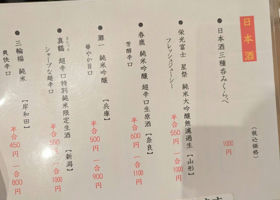 日本酒
（税込価格）
● 日本酒三種呑みくらべ 1000円
● 栄光富士 星祭 純米大吟醸無濾過生【山形】
フレッシュジューシー
半合550円 一合1000円
● 春鹿 純米吟醸 超辛口生原酒【奈良】
芳醇辛口
半合600円 一合1100円
● 灘一 純米吟醸【兵庫】
華やか旨口
半合500円 一合900円
● 真鶴 超辛口特別純米限定生酒【新潟】
シャープな超辛口
半合550円 一合1000円
● 三輪福 純米【岸和田】
爽快辛口
半合450円 一合800円